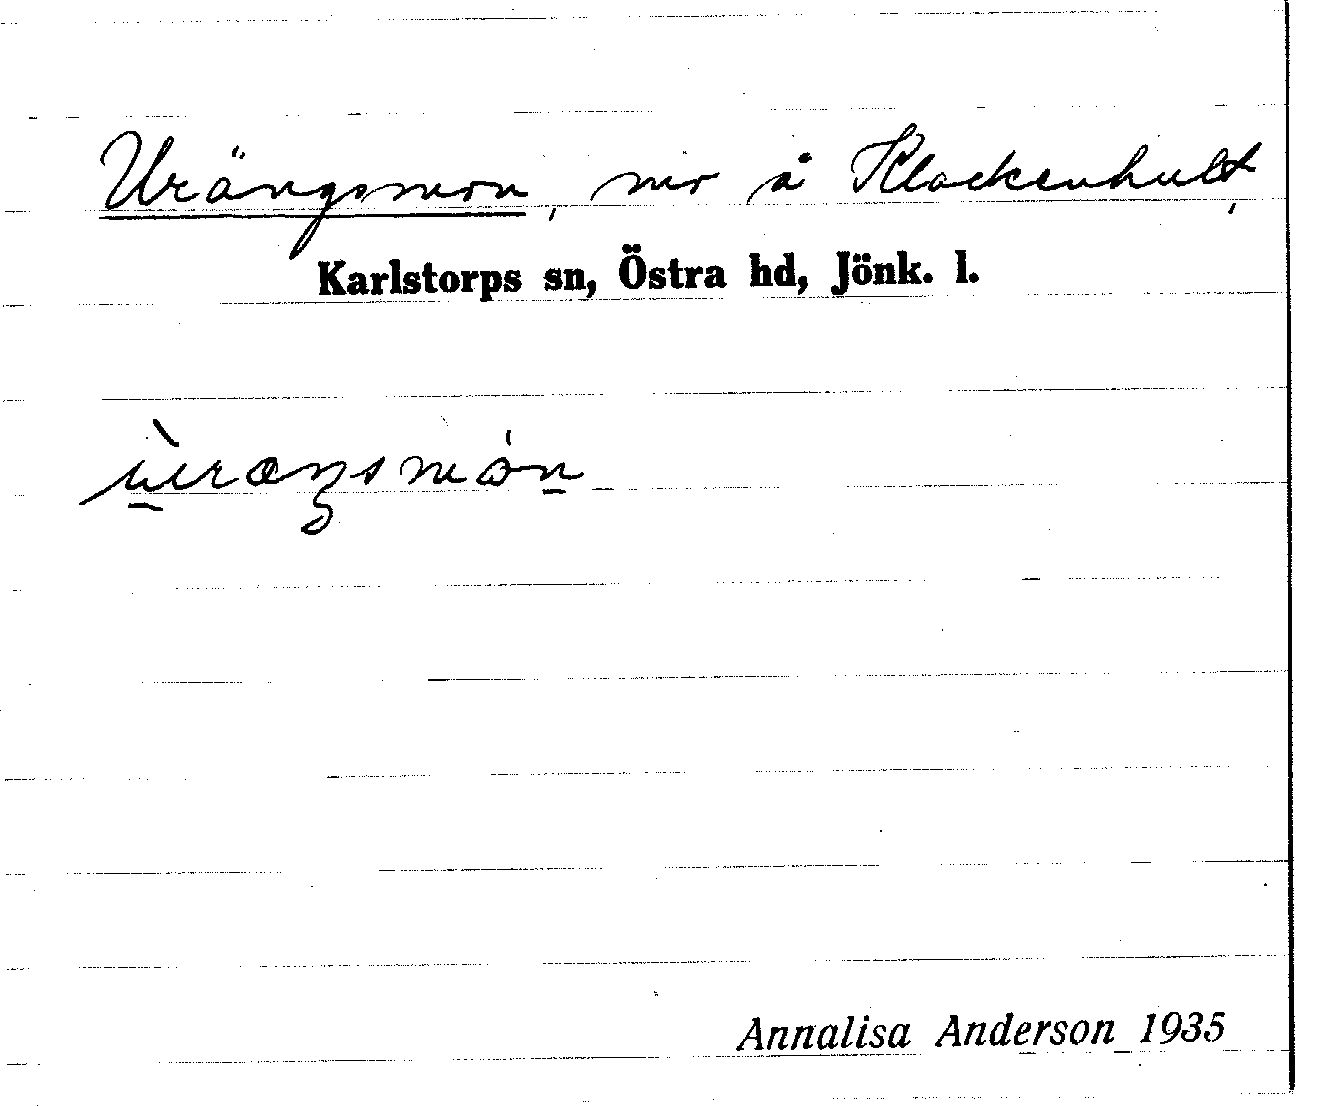 Urängsmon, mo å Klockenhult,
Karlstorps sn, Östra hd, Jönk. l.
Annalisa Anderson 1935